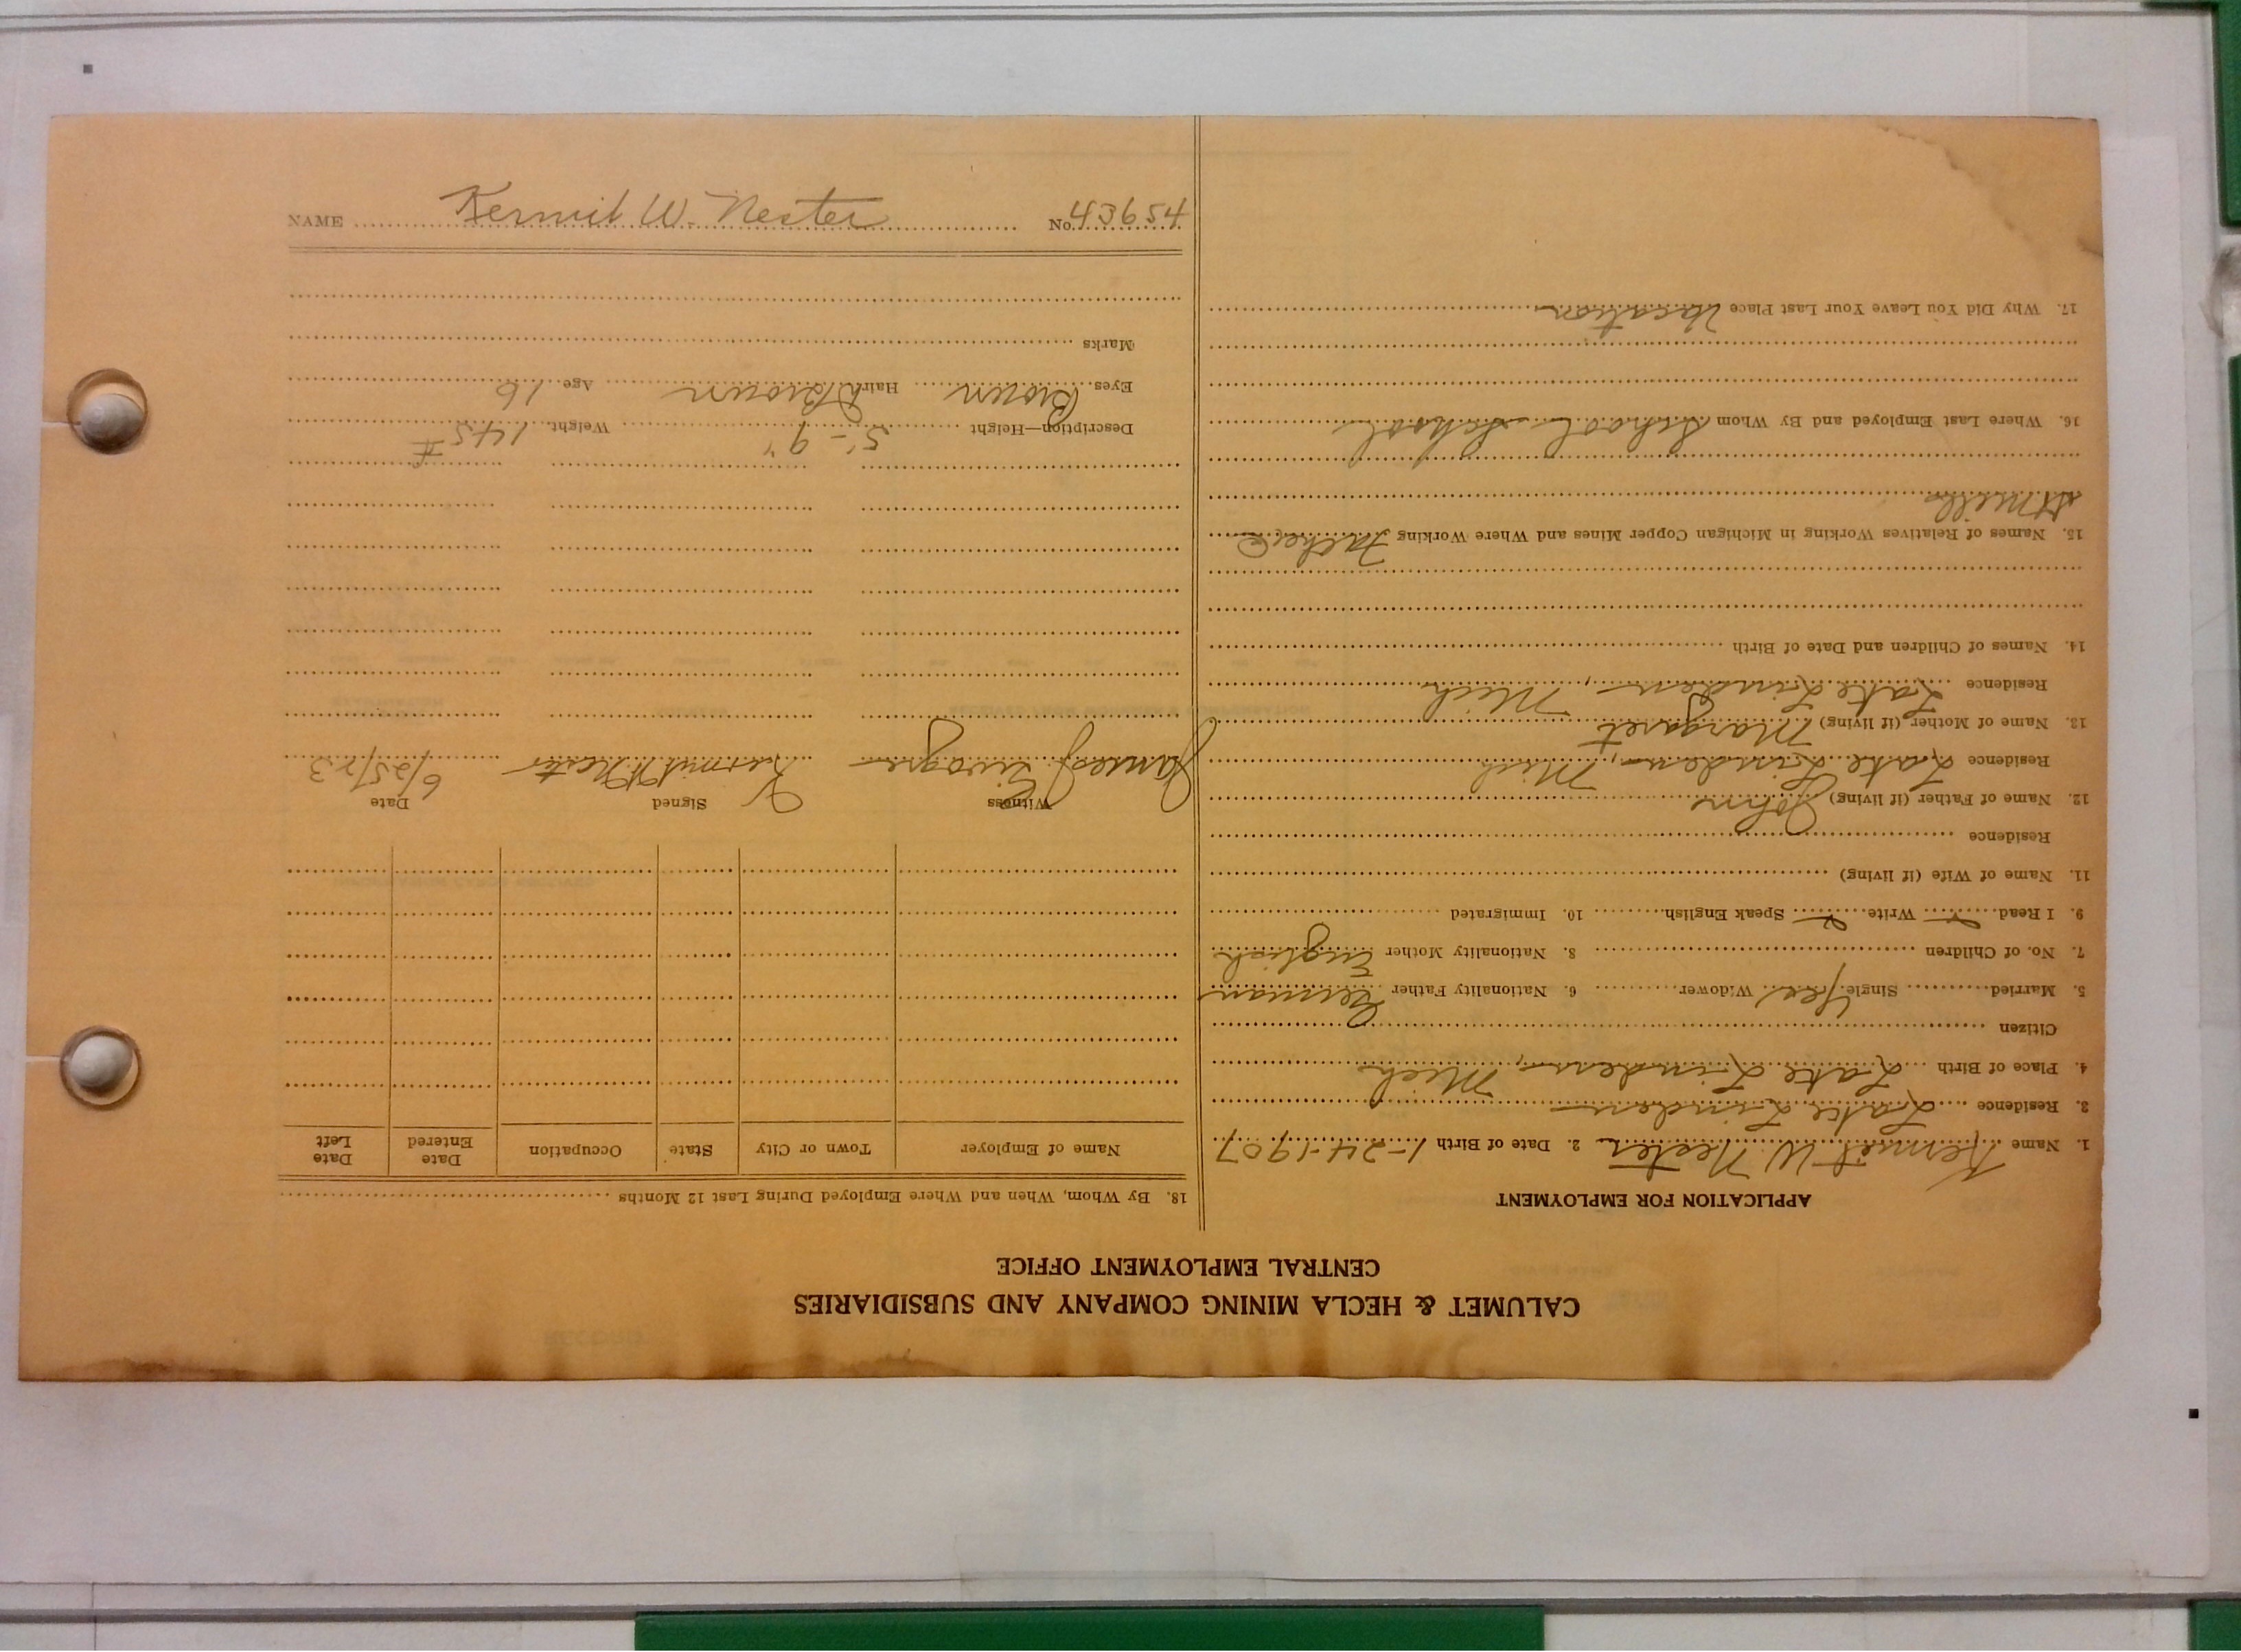 CALUMET & HECLA MINING COMPANY AND SUBSIDIARIES
CENTRAL EMPLOYMENT OFFICE
APPLICATION FOR EMPLOYMENT
1. Name Kermit W. Nester 2. Date of Birth 1-24-1907
3. Residence Lake Linden
4. Place of Birth Lake Linden, Mich
Citizen
5. Married Single Yes Widower 6. Nationality Father German
7. No. of Children 8. Nationality Mother English
9. I Read Write Speak English 10. Immigrated
11. Name of Wife (if living)
Residence
12. Name of Father (if living) John
Residence Lake Linden, Mich
13. Name of Mother (if living) Margaret
Residence Lake Linden, Mich
14. Names of Children and Date of Birth
15. Names of Relatives Working in Michigan Copper Mines and Where Working Father
St Mill
16. Where Last Employed and By Whom School School
17. Why Did You Leave Your Last Place Vacation
18. By Whom, When and Where Employed During Last 12 Months
Name of Employer Town or City State Occupation Date Entered Date Left
Witness Signed Date
James J. Kermit W Nester 6/25/23
Description—Height 5'-9" Weight 145#
Eyes Brown Hair Brown Age 16
Marks
NAME Kermit W. Nester No. 43654